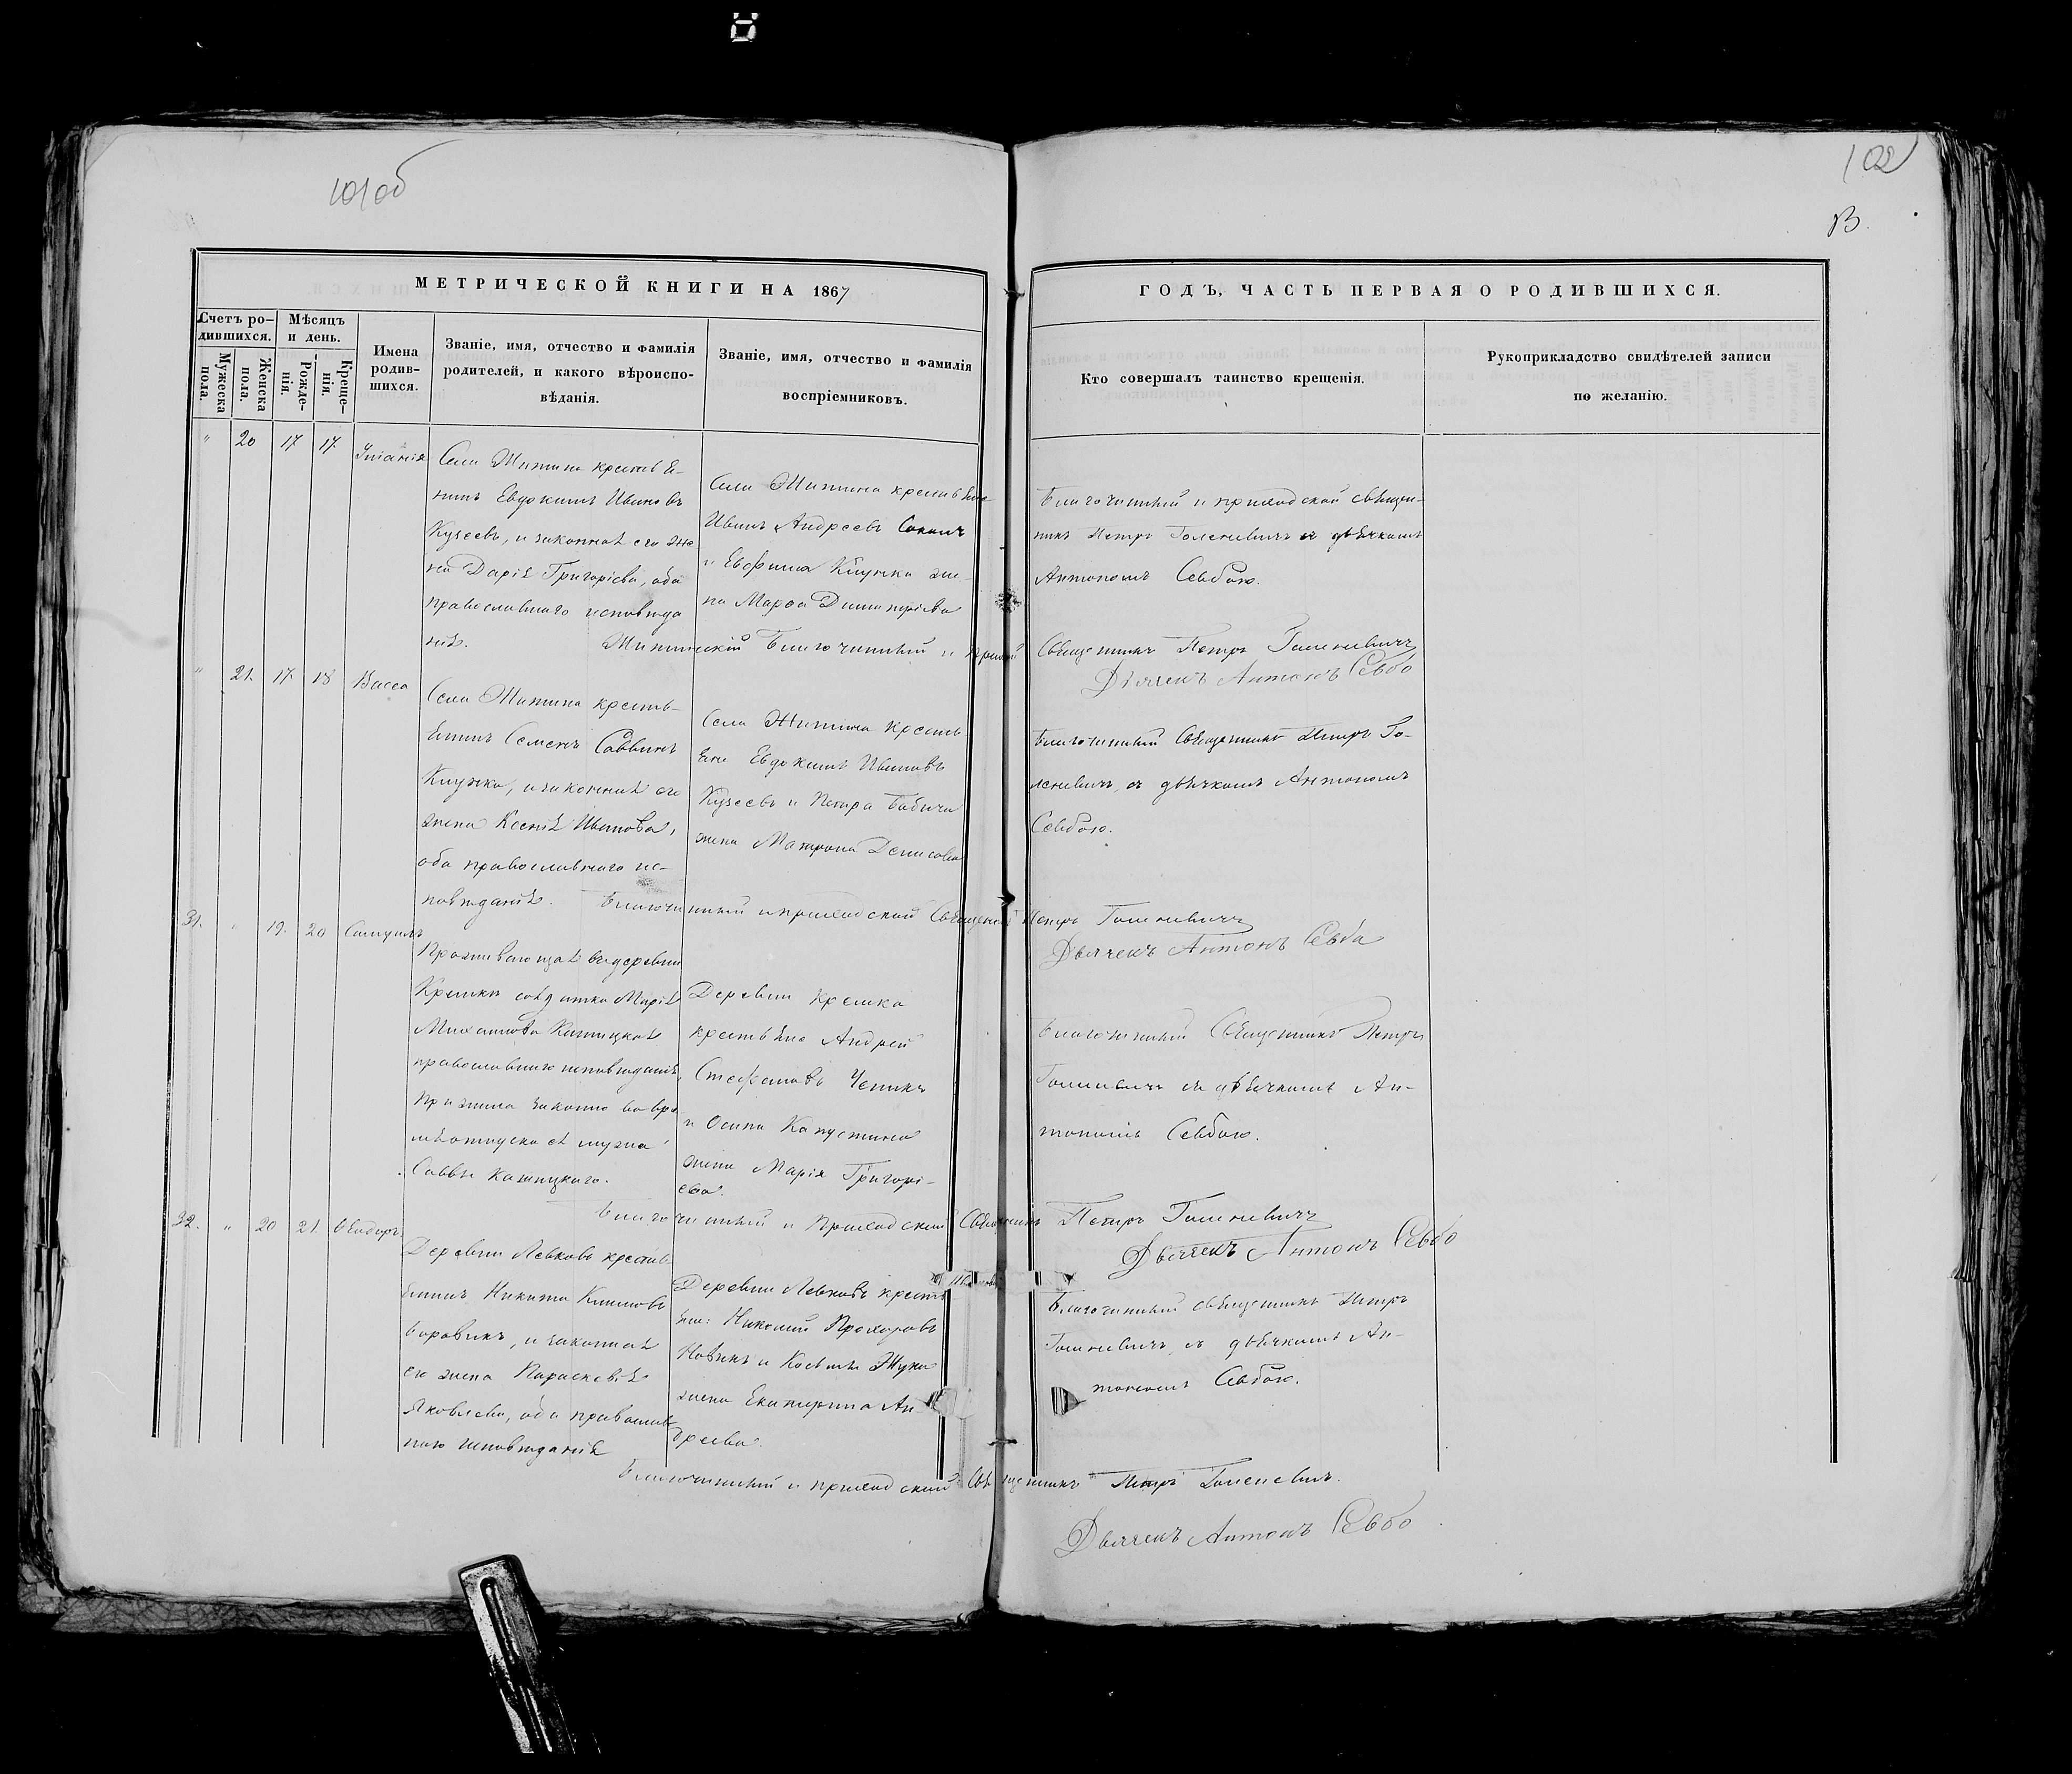 101об
102
В.
МЕТРИЧЕСКОЙ КНИГИ НА 1867
Счетъ ро-
дившихся.
Мужеска
пола.
Женска
пола.
Мѣсяцъ
и день.
Рожде-
нія.
Креще-
нія.
Имена
родив-
шихся.
Званіе, имя, отчество и фамилія
родителей, и какого вѣроиспо-
вѣданія.
Званіе, имя, отчество и фамилія
воспріемниковъ.
ГОДЪ, ЧАСТЬ ПЕРВАЯ О РОДИВШИХСЯ.
Кто совершалъ таинство крещенія.
Рукоприкладство свидѣтелей записи
по желанію.
" 20 17 17
Села Житина крестья-
нинъ Евдокимъ Ивановъ
Кузеевъ, и законная его же-
на Дарія Григорiева, оба
православнаго исповѣда
нія.
Села Житина крестьяне
Иванъ Андреевъ
и Евфима Клучки же-
на Марѳа Димитріева
Благочинный и приходской священ-
никъ Петръ Голеневичъ съ дьячкомъ
Антономъ Севбою.
Житинскій Благочинный и Священникъ Петръ Голеневичъ
Дьячекъ Антонъ Севбо
" 21. 17. 18 Васса
Села Житина кресть-
янинъ Семенъ Саввинъ
и законная его
жена Ксенія Иванова,
оба православнаго ис-
повѣданія.
Села Житина кресть-
яне Евдокимъ Ивановъ
Кузеевъ и Петра Бабича
жена Матрона Денисова
Благочинный Священникъ Петръ Го-
леневичъ, съ дьячкомъ Антономъ
Севбою.
Благочинный и приходской Священникъ Петръ Голеневичъ
Дьячекъ Антонъ Севба
31. " 19. 20 Самуилъ
Проживающая въ деревни
Крюшки солдатка Марія
Михаилова
православнаго исповѣданія,
прижила законно во вре
мя отпуска съ мужа
Саввы
Деревни
крестьяне Андрей
Стефановъ Чепикъ
и Осипа Капустина
жена Марія Григорі-
ева.
Благочинный Священникъ Петръ
Голеневичъ съ дьячкомъ Ан-
тономъ Севбою.
Благочинный и Приходской Священникъ Петръ Голеневичъ
Дьячекъ Антонъ Севбо
32. " 20 21. Ѳеодоръ
Деревни Левковъ кресть-
янинъ Никита Климовъ
Боровикъ, и законная
его жена Параскевія
Яковлева, оба православ
наго исповѣданія
Деревни Левковъ кресть
яне: Николай Прохоровъ
Новикъ и Космы Жука
жена Екатерина Ан-
дреева.
Благочинный священникъ Петръ
Голеневичъ, съ дьячкомъ Ан-
тономъ Севбою.
Благочинный и приходской Священникъ Петръ Голеневичъ.
Дьячекъ Антонъ Севбо